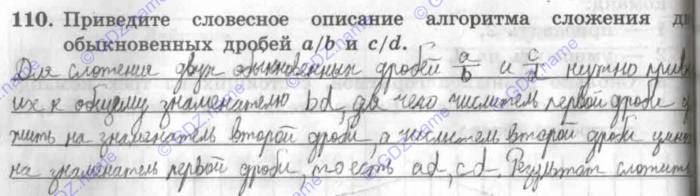 110. Приведите словесное описание алгоритма сложения дв
обыкновенных дробей a/b и c/d.
Для сложения двух обыкновенных дробей a/b и c/d нужно приве
их к общему знаменателю bd, для чего числитель первой дроби у
жить на знаменатель второй дроби, а числитель второй дроби умно
на знаменатель первой дроби, то есть ad, cd. Результат сложить
©GDZname